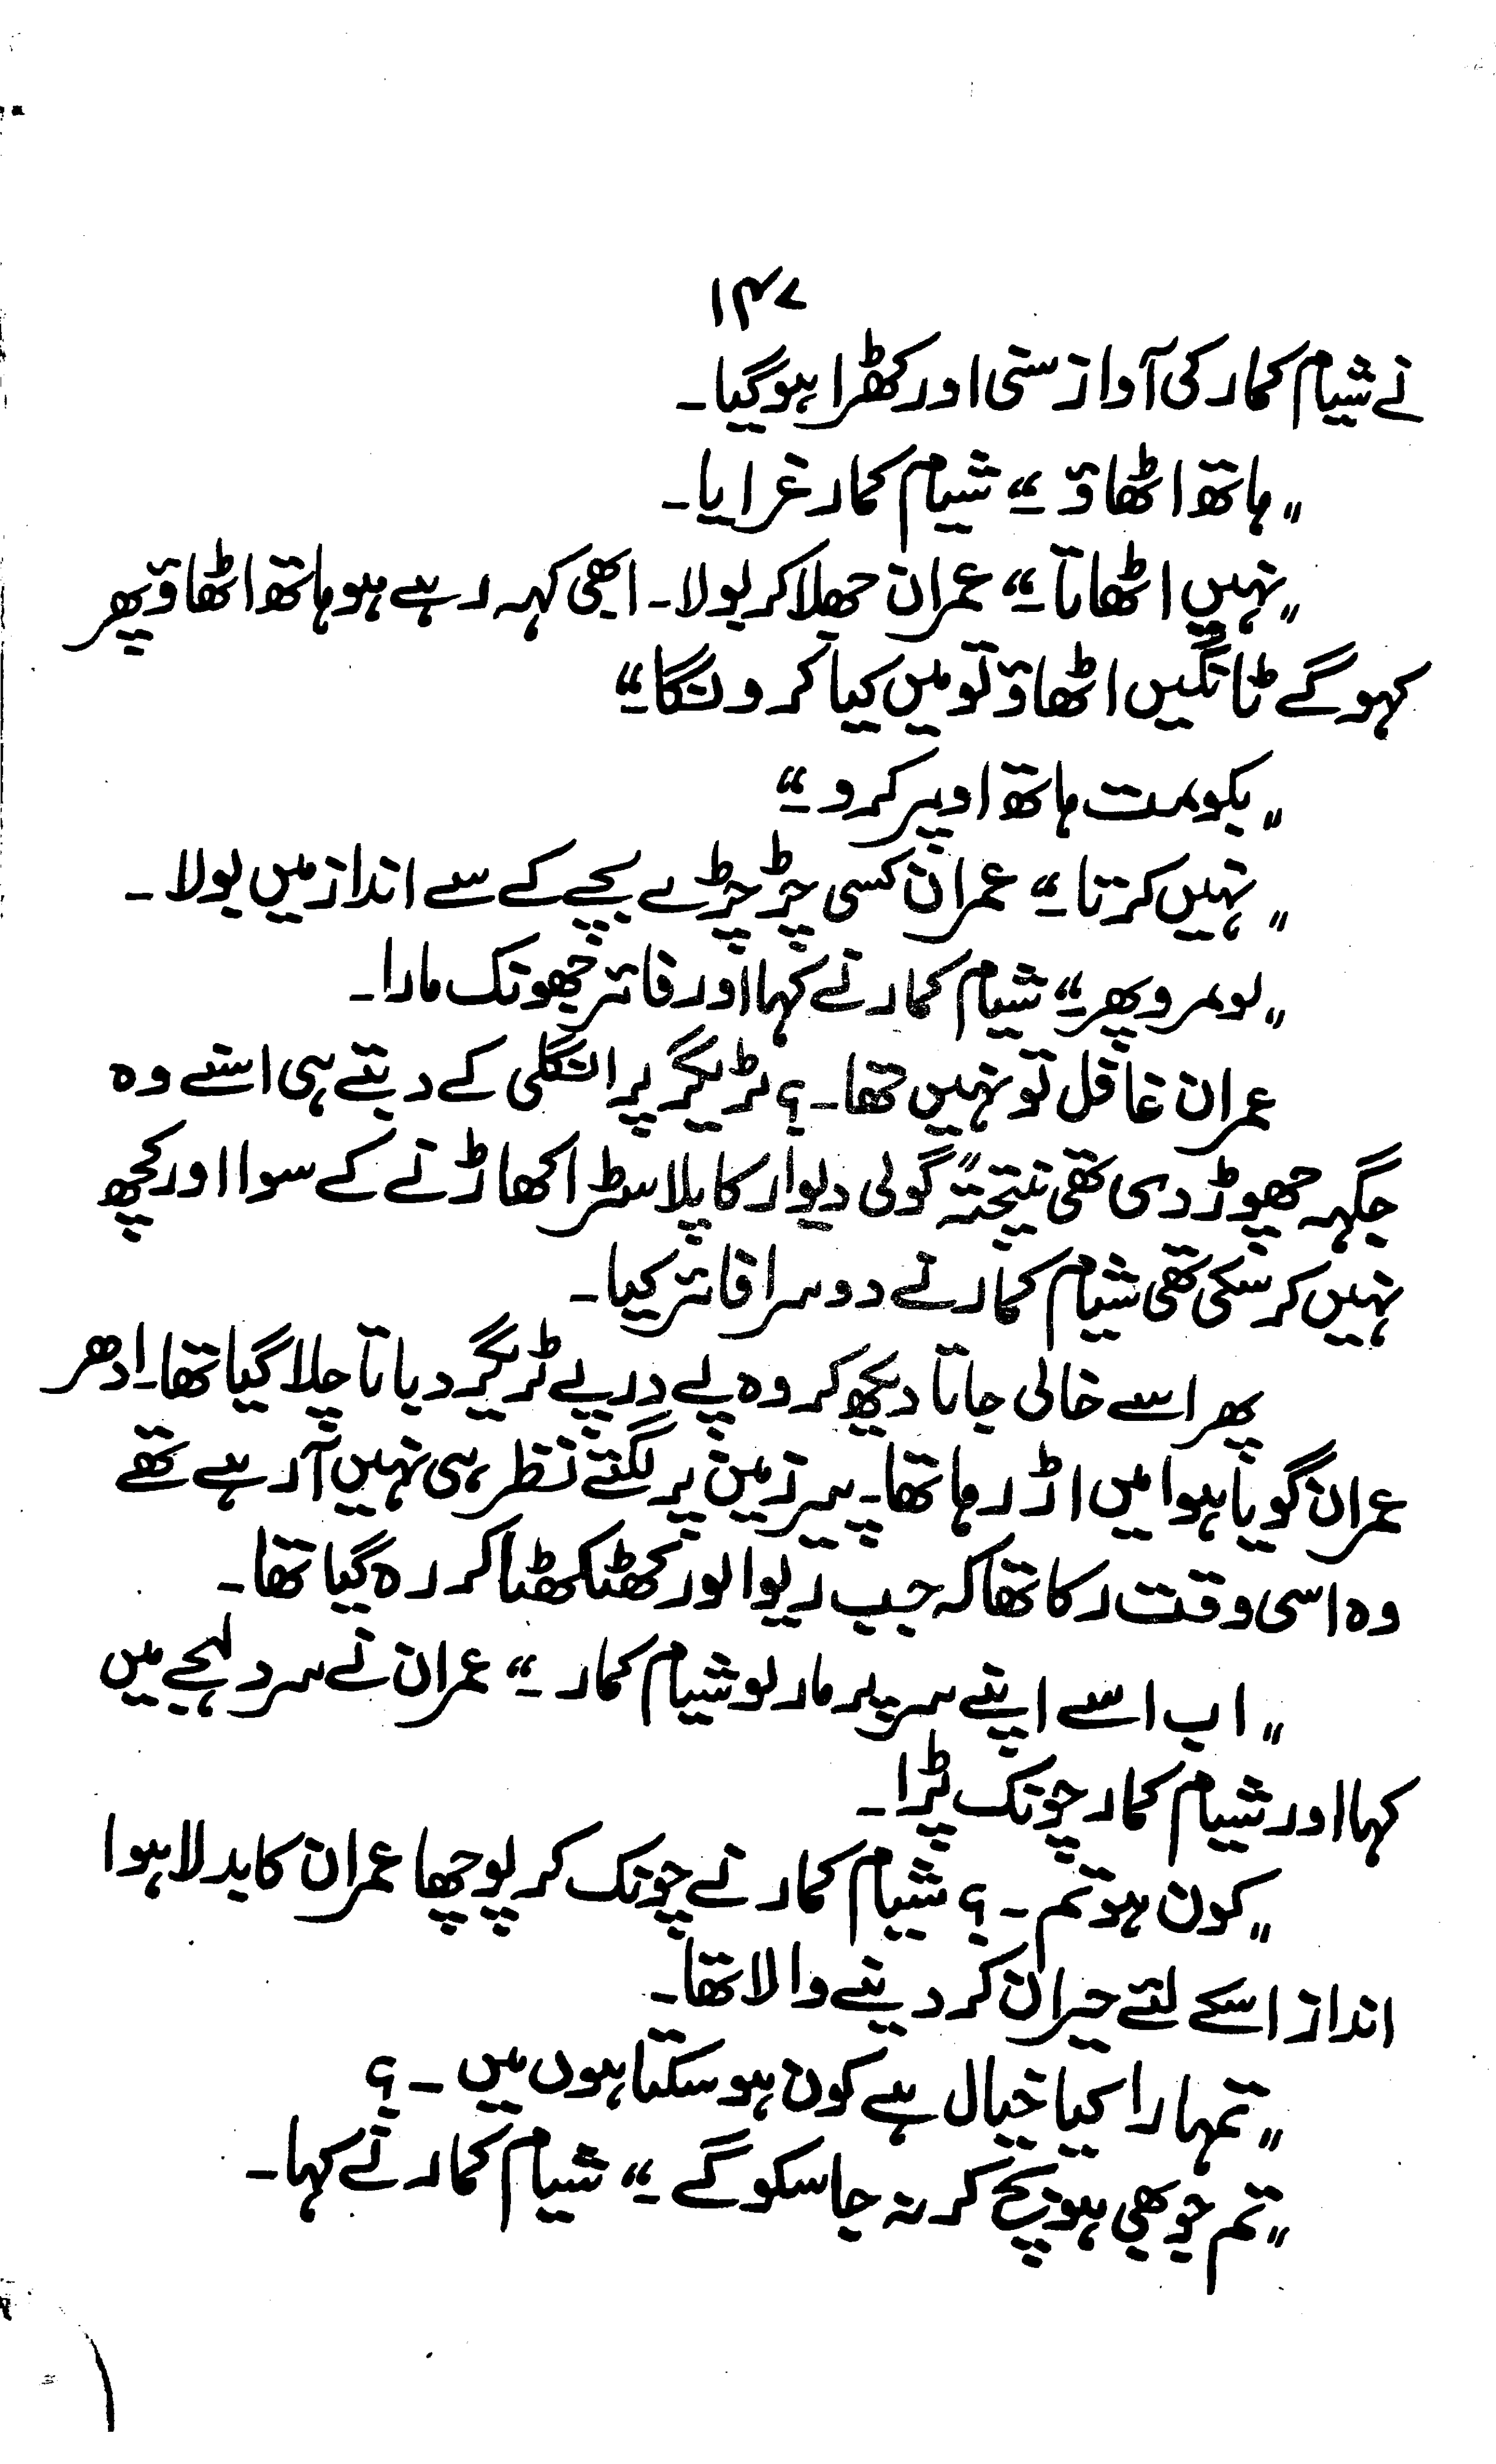 ۱۴۷
نے شیام کمار کی آواز سنی اور کھڑا ہوگیا۔
"ہاتھ اٹھاؤ۔" شیام کمار غرایا۔
"نہیں اٹھاتا۔" عمران جھلا کر بولا۔ ابھی کہہ رہے ہو ہاتھ اٹھاؤ پھر
کہو گے ٹانگیں اٹھاؤ تو میں کیا کرونگا۔"
"بکو مت ہاتھ اوپر کرو۔"
"نہیں کرتا۔" عمران کسی چڑچڑے بچے کے سے انداز میں بولا۔
"لو مرو پھر۔" شیام کمار نے کہا اور فائر جھونک مارا۔
عمران غافل تو نہیں تھا۔؟ ٹریگر پر انگلی کے دبتے ہی اسنے وہ
جگہ چھوڑ دی تھی نتیجتہً گولی دیوار کا پلاسٹر اکھاڑنے کے سوا اور کچھ
نہیں کر سکی تھی شیام کمار نے دوسرا فائر کیا۔
پھر اسے خالی جاتا دیکھ کر وہ پے درپے ٹریگر دباتا چلا گیا تھا۔ ادھر
عمران گویا ہوا میں اڑ رہا تھا۔ پیر زمین پر لگتے نظر ہی نہیں آرہے تھے
وہ اسی وقت رکا تھا کہ جب ریوالور کھٹکھٹا کر رہ گیا تھا۔
"اب اسے اپنے سر پر مار لو شیام کمار۔" عمران نے سرد لہجے میں
کہا اور شیام کمار چونک پڑا۔
"کون ہو تم۔؟ شیام کمار نے چونک کر پوچھا عمران کا بدلا ہوا
انداز اسکے لئے حیران کر دینے والا تھا۔
"تمہارا کیا خیال ہے کون ہو سکتا ہوں میں۔؟
"تم جو بھی ہو بچ کر نہ جا سکو گے۔" شیام کمار نے کہا۔